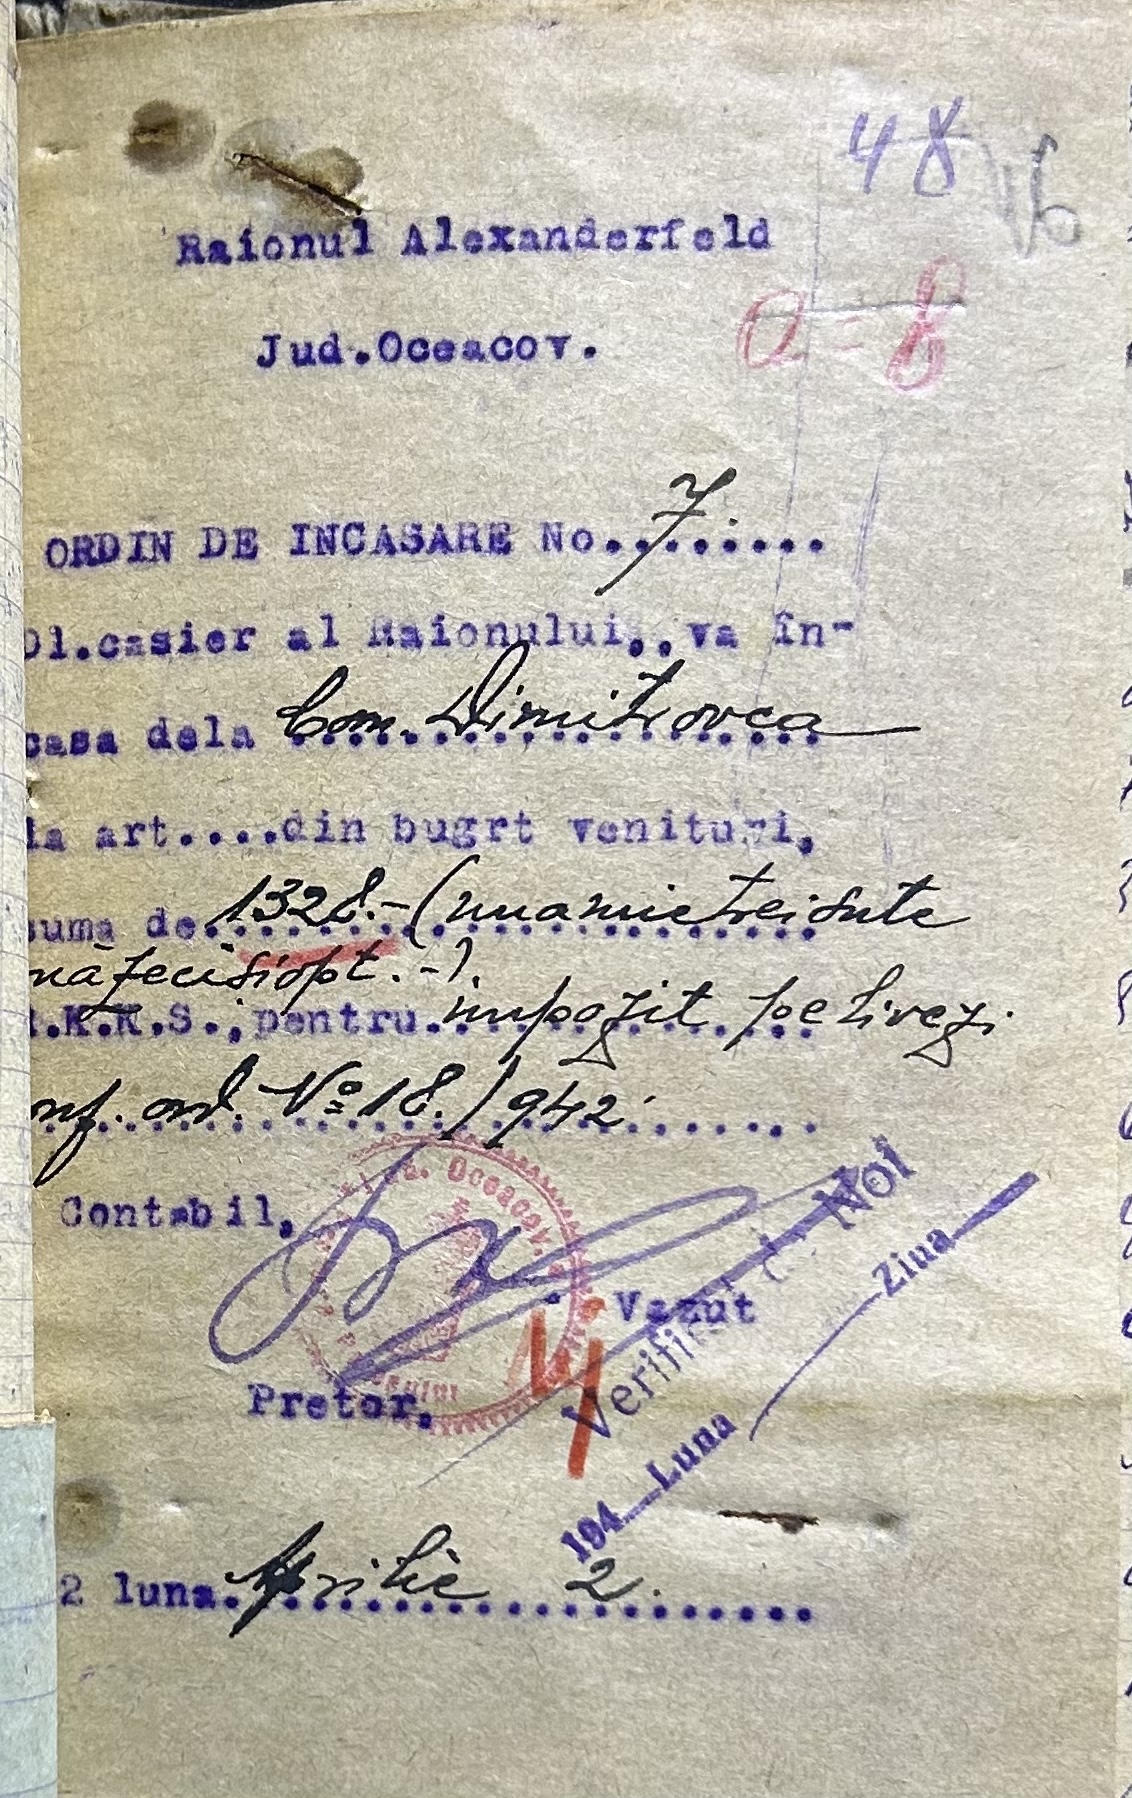 48
Raionul Alexanderfeld
Jud.Oceacov.
ORDIN DE INCASARE No. 7.
Dl.casier al Raionului,.va în-
casa dela Com. Dimitrovca
la art....din bugrt venituri,
suma de 1328.-(unamietreisute
năzecișiopt.-).
R.K.K.S.,pentru impozit pe livezi
nf. ord. No 18./942.
Contabil,
Oceacov.
Vazut
Verificat de Noi
194__Luna ___ Ziua
Pretor,
2 luna Aprilie 2.